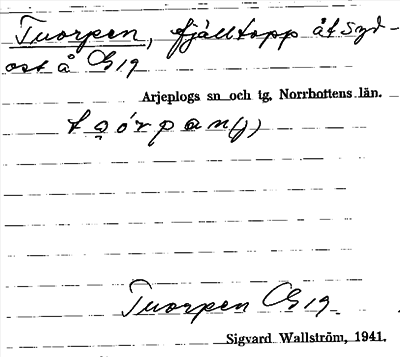 Tuorpen, fjälltopp åt syd-
ost å G19
Arjeplogs sn och tg, Norrbottens län.
t o̬ ó r p a n (j)
Tuorpen G19.
Sigvard Wallström, 1941.